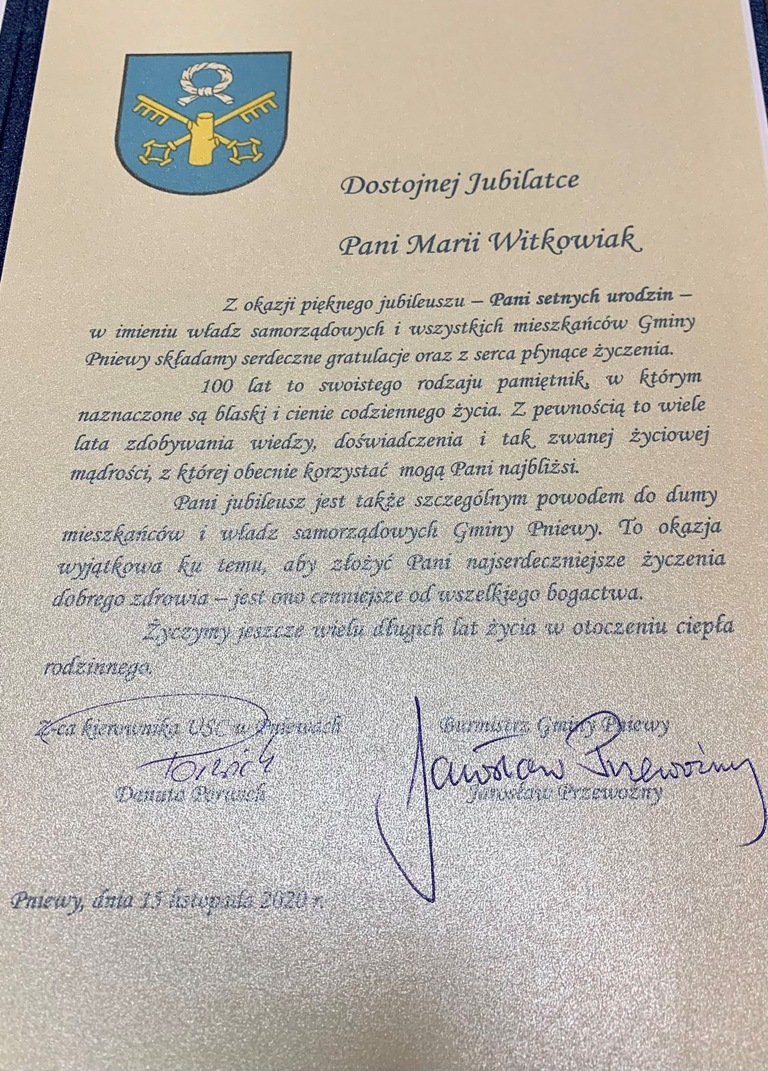 Dostojnej Jubilatce
Pani Marii Witkowiak
Z okazji pięknego jubileuszu – Pani setnych urodzin –
w imieniu władz samorządowych i wszystkich mieszkańców Gminy
Pniewy składamy serdeczne gratulacje oraz z serca płynące życzenia.
100 lat to swoistego rodzaju pamiętnik, w którym
naznaczone są blaski i cienie codziennego życia. Z pewnością to wiele
lata zdobywania wiedzy, doświadczenia i tak zwanej życiowej
mądrości, z której obecnie korzystać mogą Pani najbliżsi.
Pani jubileusz jest także szczególnym powodem do dumy
mieszkańców i władz samorządowych Gminy Pniewy. To okazja
wyjątkowa ku temu, aby złożyć Pani najserdeczniejsze życzenia
dobrego zdrowia – jest ono cenniejsze od wszelkiego bogactwa.
Życzymy jeszcze wielu długich lat życia w otoczeniu ciepła
rodzinnego.
Z-ca kierownika USC w Pniewach
Danuta
Burmistrz Gminy Pniewy
Jarosław Przewoźny
Jarosław Przewoźny
Pniewy, dnia 15 listopada 2020 r.